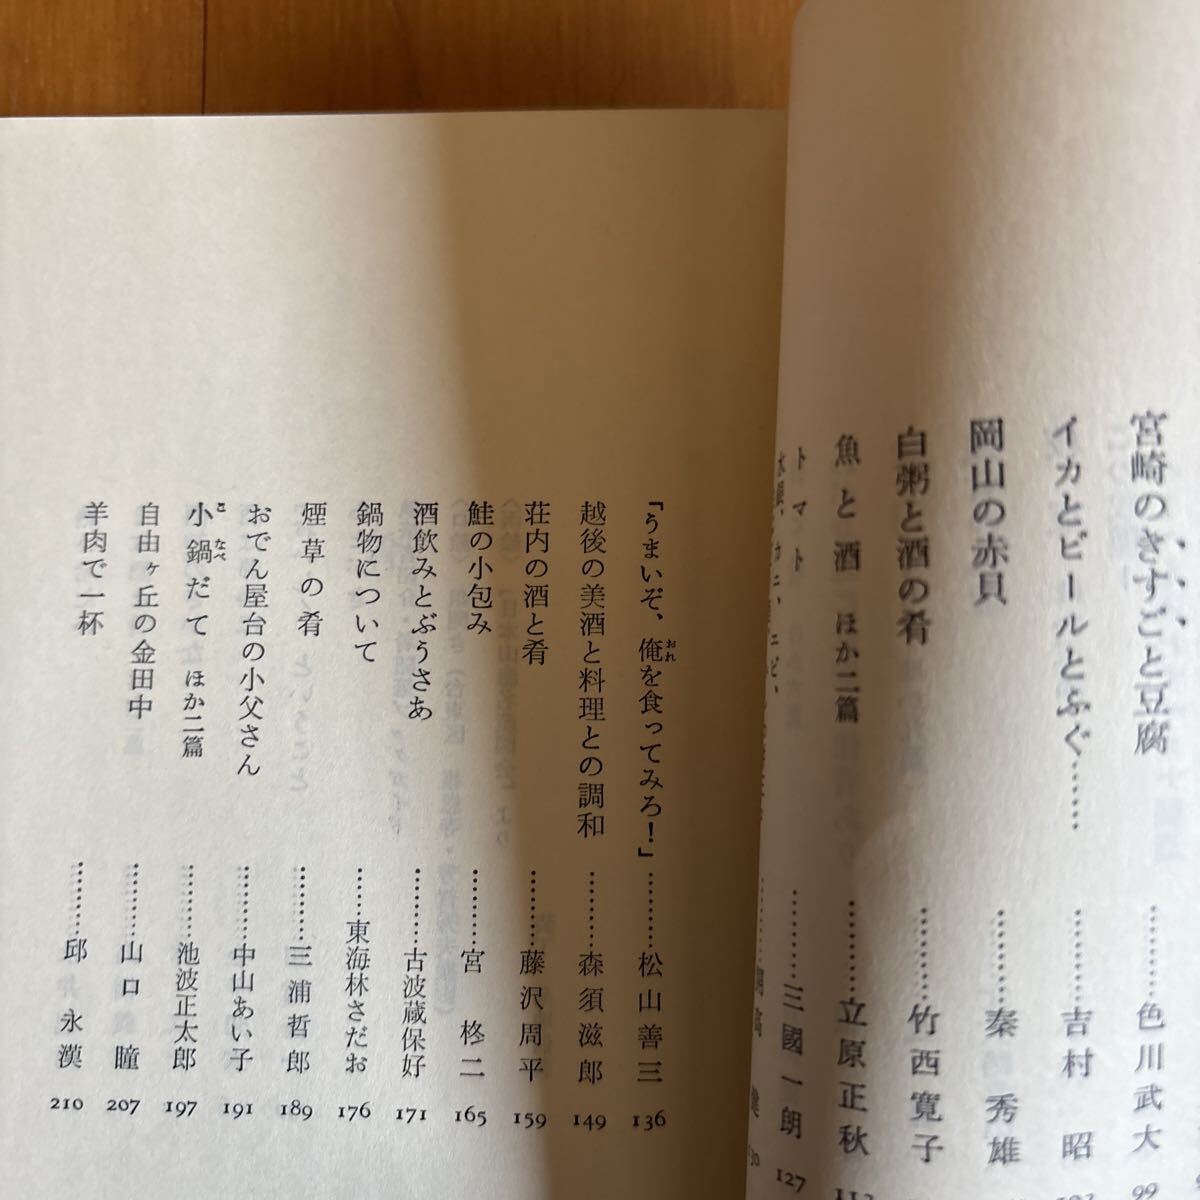 宮崎のきすごと豆腐………色川武大 99
イカとビールとふぐ………吉村 昭
岡山の赤貝………秦 秀雄
白粥と酒の肴………竹西寛子
魚と酒 ほか二篇………立原正秋
トマト………三國一朗 127
「うまいぞ、俺を食ってみろ！」………松山善三 136
越後の美酒と料理との調和………森須滋郎 149
荘内の酒と肴………藤沢周平 159
鮭の小包み………宮 柊二 165
酒飲みとぶうさあ………古波蔵保好 171
鍋物について………東海林さだお 176
煙草の肴………三浦哲郎 189
おでん屋台の小父さん………中山あい子 191
小鍋だて ほか二篇………池波正太郎 197
自由ヶ丘の金田中………山口 瞳 207
羊肉で一杯………邱 永漢 210